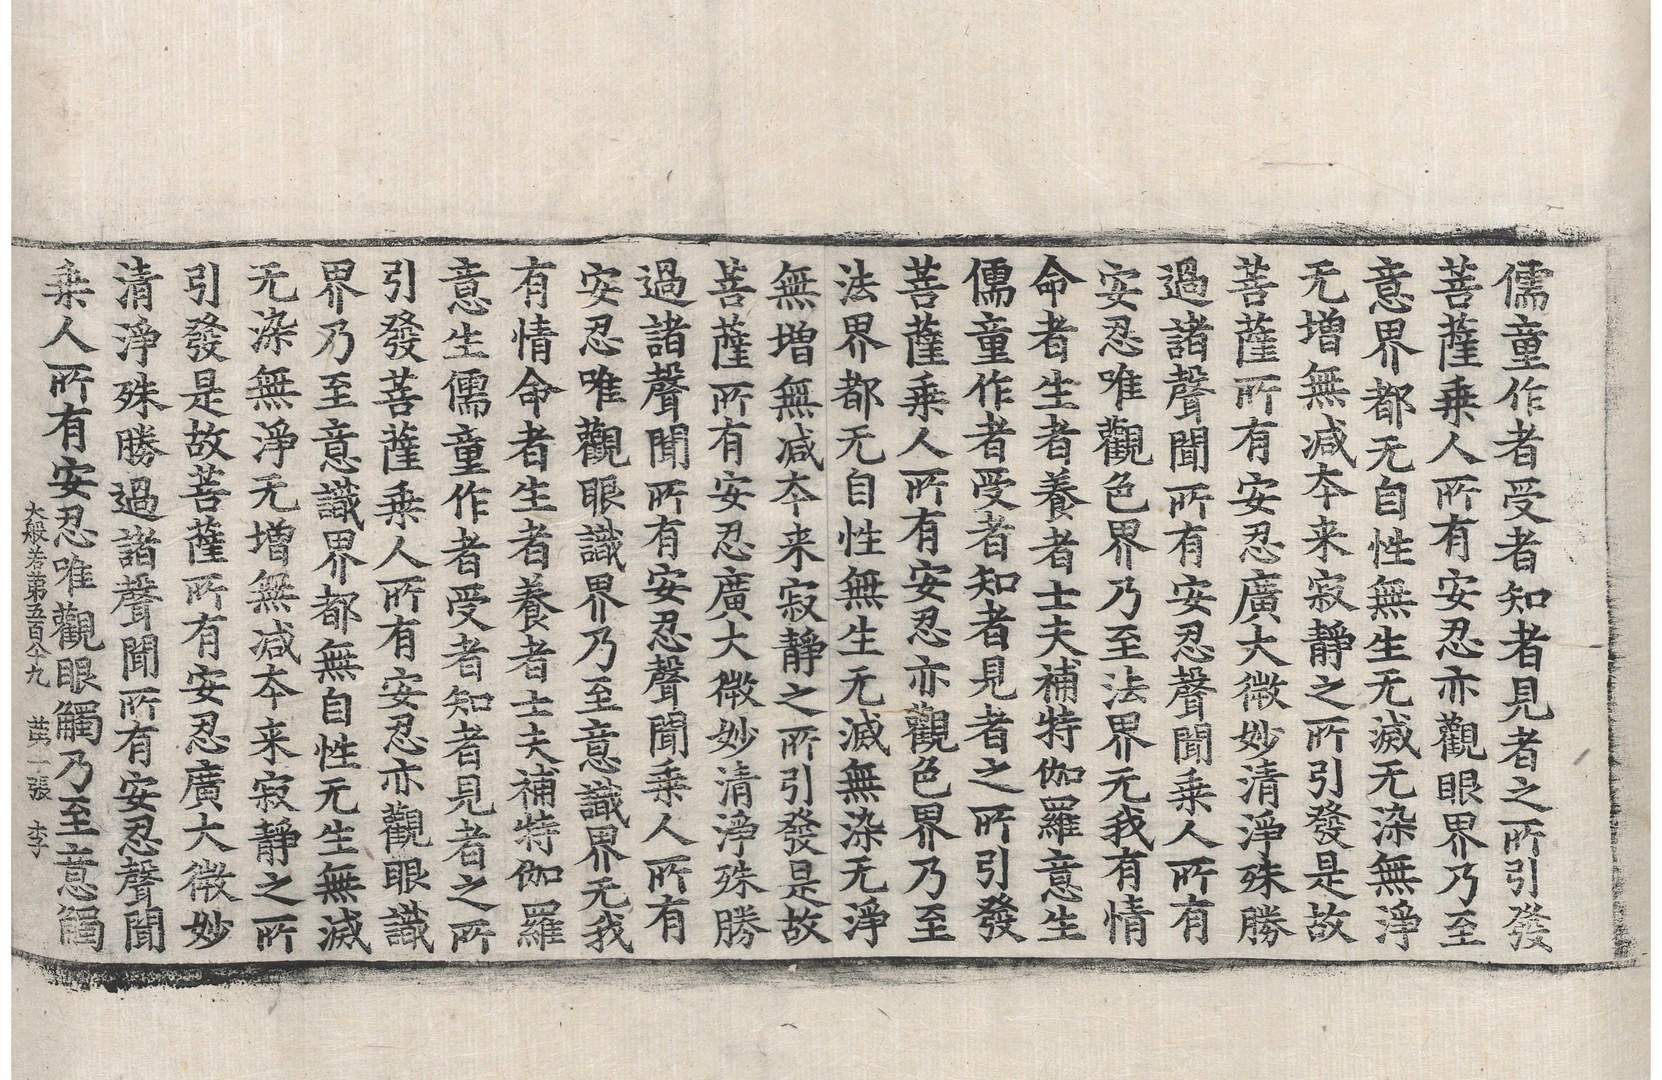 儒童作者受者知者見者之所引發
菩薩乗人所有安忍亦觀眼界乃至
意界都无自性無生无滅无染無淨
无增無减夲来寂靜之所引發是故
菩薩所有安忍廣大微妙清淨殊勝
過諸聲聞所有安忍聲聞乗人所有
安忍唯觀色界乃至法界无我有情
命者生者養者士夫補特伽羅意生
儒童作者受者知者見者之所引發
菩薩乗人所有安忍亦觀色界乃至
法界都无自性無生无滅無染无淨
無增無减夲来寂靜之所引發是故
菩薩所有安忍廣大微妙清淨殊勝
過諸聲聞所有安忍聲聞乗人所有
安忍唯觀眼識界乃至意識界无我
有情命者生者養者士夫補特伽羅
意生儒童作者受者知者見者之所
引發菩薩乗人所有安忍亦觀眼識
界乃至意識界都無自性无生無滅
无染無淨无增無减夲来寂靜之所
引發是故菩薩所有安忍廣大微妙
清淨殊勝過諸聲聞所有安忍聲聞
乗人所有安忍唯觀眼觸乃至意觸
大般若第五百八十九 苐一張 李